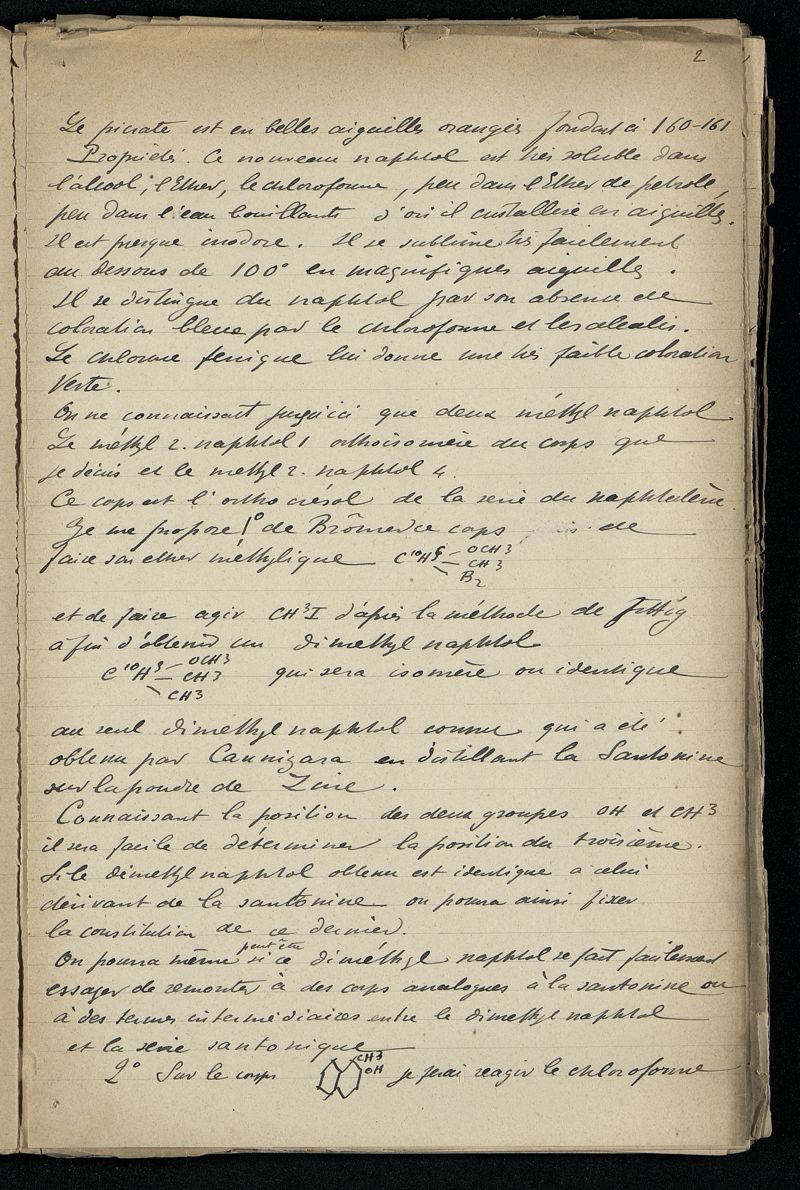 2
Le picrate est en belles aiguilles oranges fondant à 160-161
Propriétés. Ce nouveau naphtol est très soluble dans
l'alcool, l'Ether, le chloroforme, peu dans l'Ether de petrole,
peu dans l'eau bouillante d'où il cristallise en aiguilles.
Il est presque inodore. Il se sublime très facilement
au dessous de 100° en magnifiques aiguilles.
Il se distingue du naphtol par son absence de
coloration bleue par le chloroforme et les alcalis.
Le chlorure ferrique lui donne une très faible coloration
Verte.
On ne connaissait jusqu'ici que deux méthyl naphtol
Le méthyl 2. naphtol 1 orthoisomère du corps que
je décris et le methyl 2. naphtol 4.
Ce corps est l'ortho crésol de la serie du naphtalène.
Je me propose 1° de Brômer ce corps de
faire son ether méthylique C10H5 OCH3
CH3
B2
et de faire agir CH3I d'après la méthode de Fittig
afin d'obtenir un dimethyl naphtol
C10H5 OCH3
CH3
CH3
qui sera isomère ou identique
au seul dimethyl naphtol connu qui a été
obtenu par Cannizara en distillant la Santonine
sur la poudre de Zinc.
Connaissant la position des deux groupes OH et CH3
il sera facile de déterminer la position du troisième.
Si le dimethyl naphtol obtenu est identique à celui
dérivant de la santonine on pourra ainsi fixer
la constitution de ce dernier.
On pourra même peut être si ce diméthyl naphtol se fait facilement
essayer de remonter à des corps analogues à la santonine ou
à des termes intermédiaires entre le dimethyl naphtol
et la série santonique
2° Sur le corps CH3 OH je ferai reagir le chloroforme